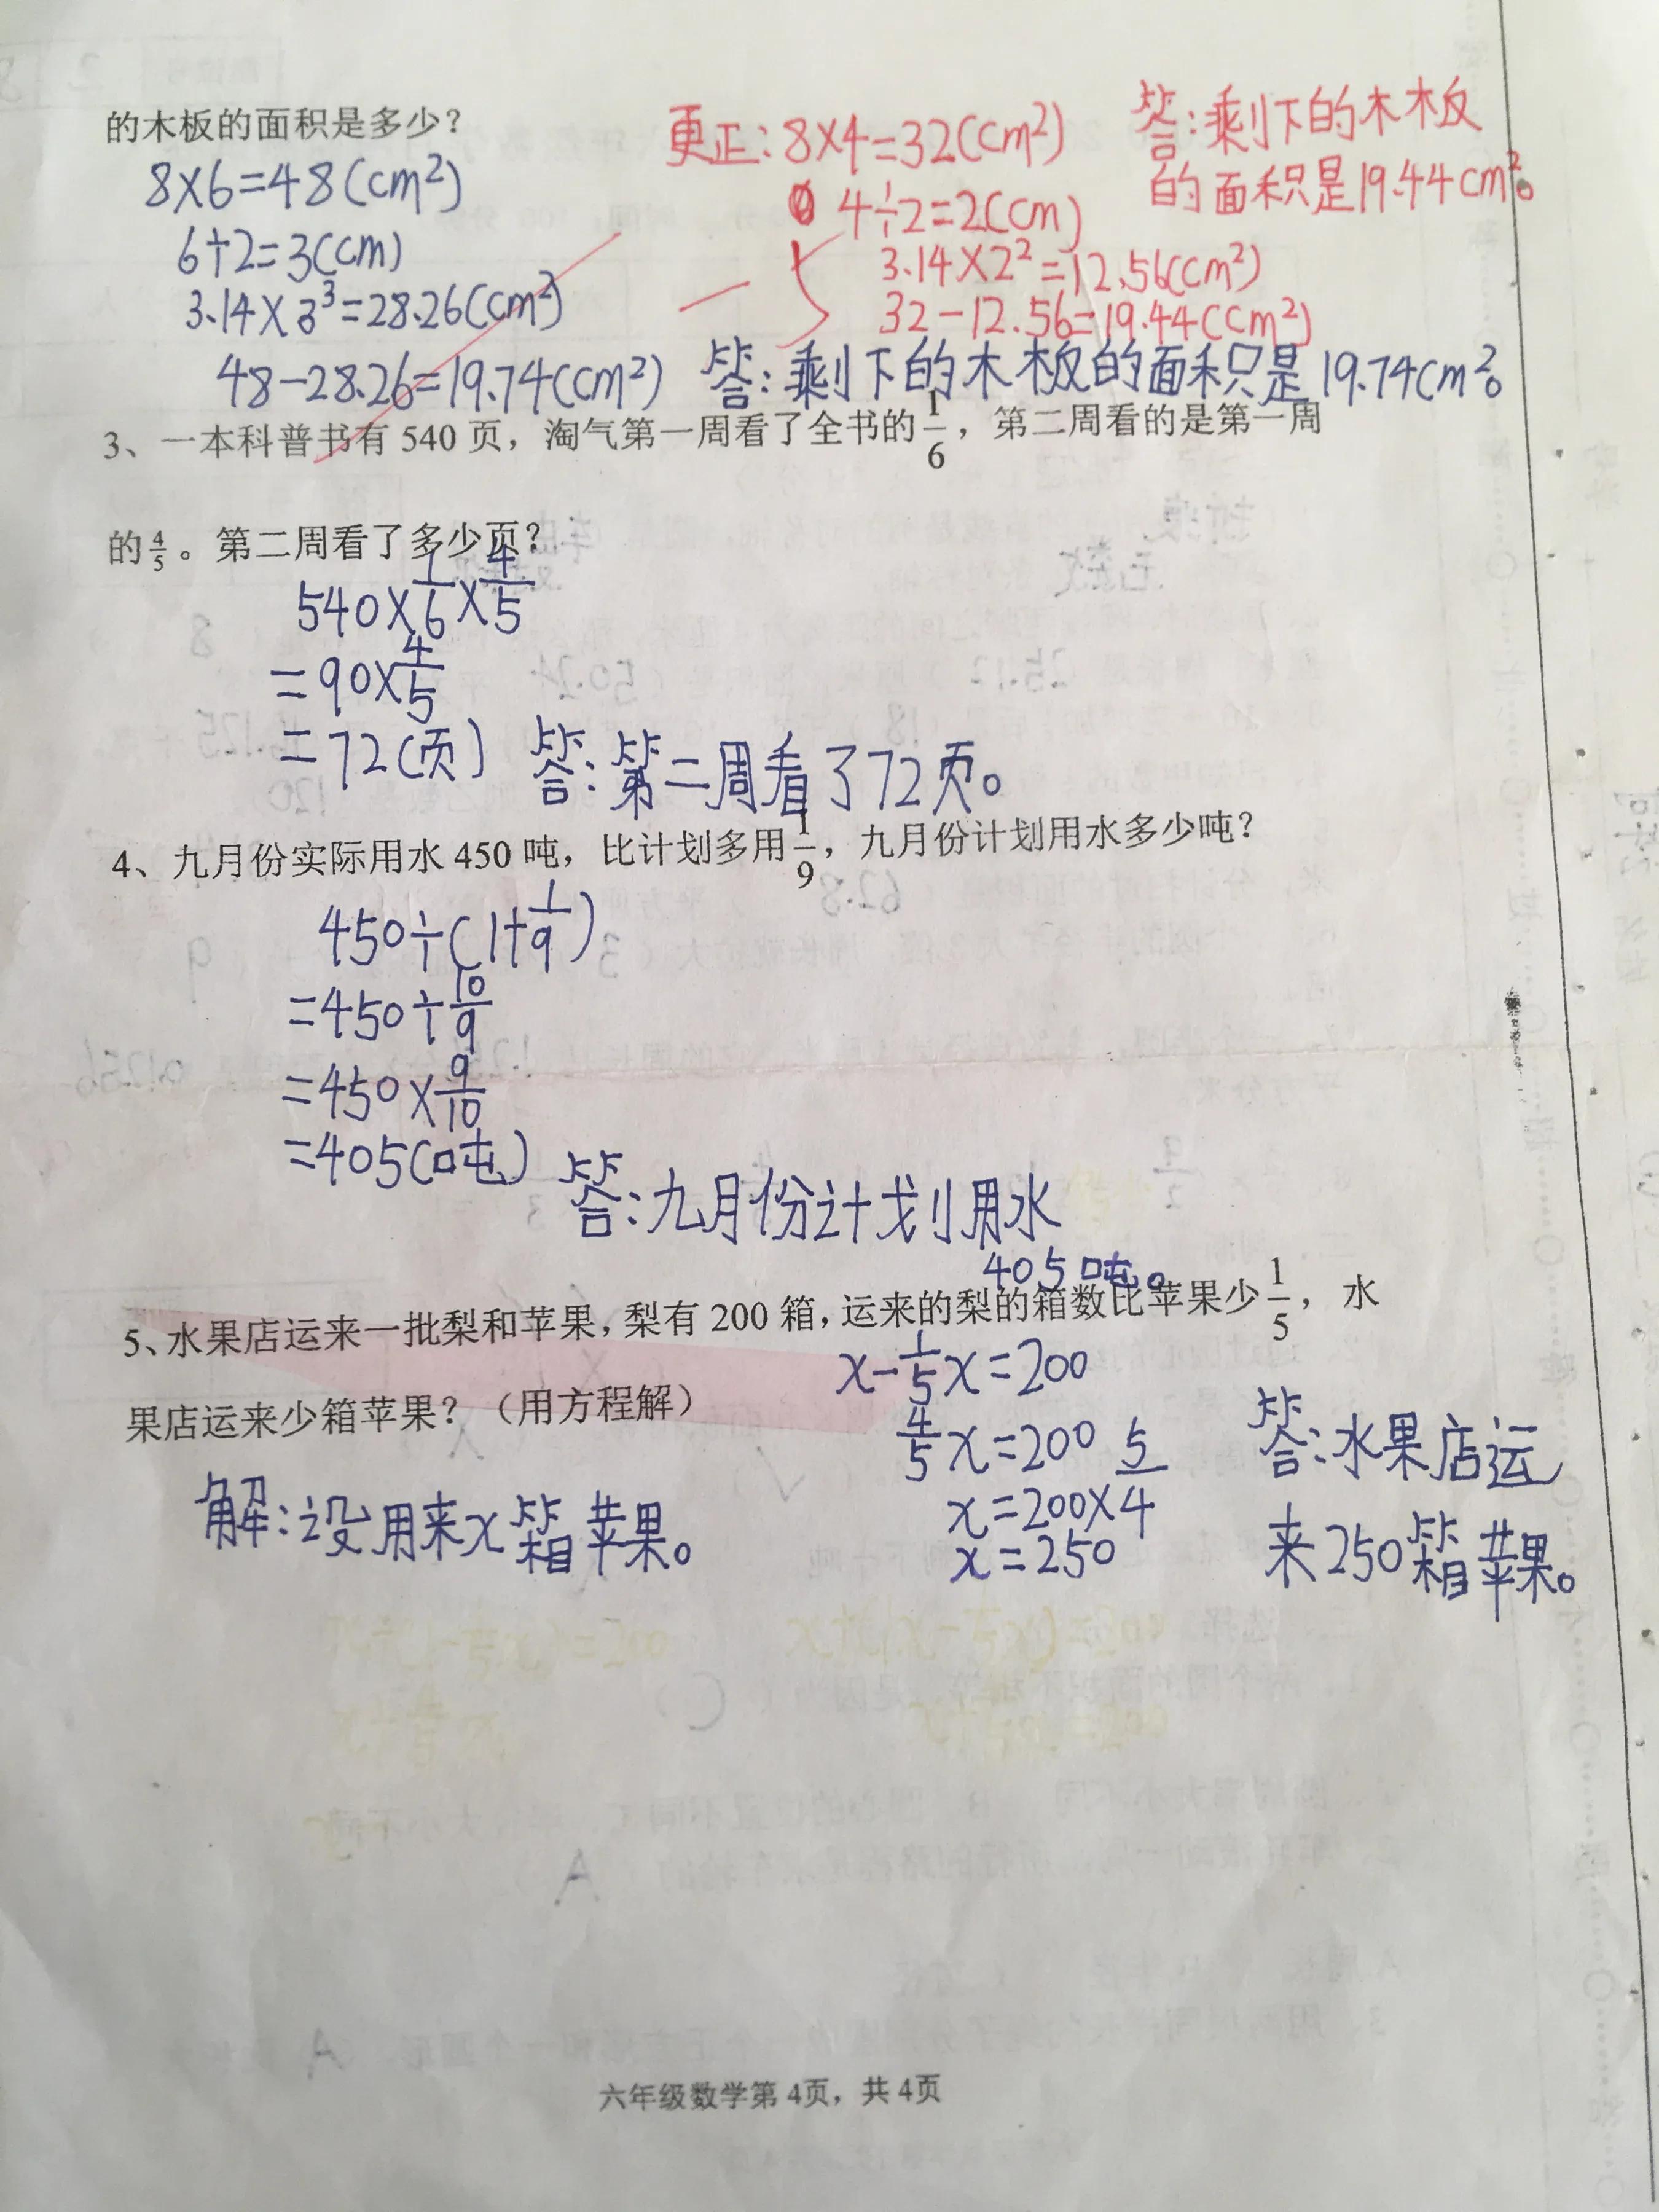 的木板的面积是多少？
8×6=48(cm²)
6÷2=3(cm)
3.14×3³=28.26(cm²)
48-28.26=19.74(cm²)
答:剩下的木木板的面积只是19.74cm²。
更正:8×4=32(cm²)
4÷2=2(cm)
3.14×2²=12.56(cm²)
32-12.56=19.44(cm²)
答:剩下的木木板
的面积是19.44cm²。
3、一本科普书有 540 页，淘气第一周看了全书的1/6，第二周看的是第一周
的4/5。第二周看了多少页？
540×1/6×4/5
=90×4/5
=72(页)
答:第二周看了72页。
4、九月份实际用水 450 吨，比计划多用1/9，九月份计划用水多少吨？
450÷(1+1/9)
=450÷10/9
=450×9/10
=405(吨)
答:九月份计划用水
405吨。
5、水果店运来一批梨和苹果，梨有 200 箱，运来的梨的箱数比苹果少1/5，水
果店运来少箱苹果？（用方程解）
解:设用来x箱苹果。
x-1/5x=200
4/5x=200
x=200×5/4
x=250
答:水果店运
来250箱苹果。
六年级数学第 4页，共 4页